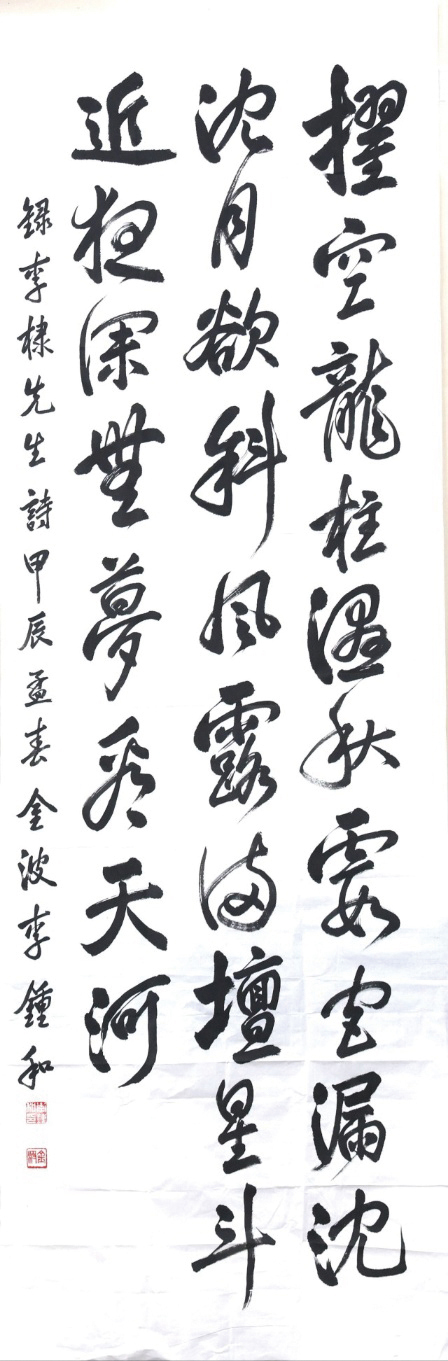 擢空龍柱濕秋霞宮漏沈
沈月欲斜風露滿壇星斗
近夜深無夢看天河
錄李棣先生詩甲辰孟春金波李鍾和